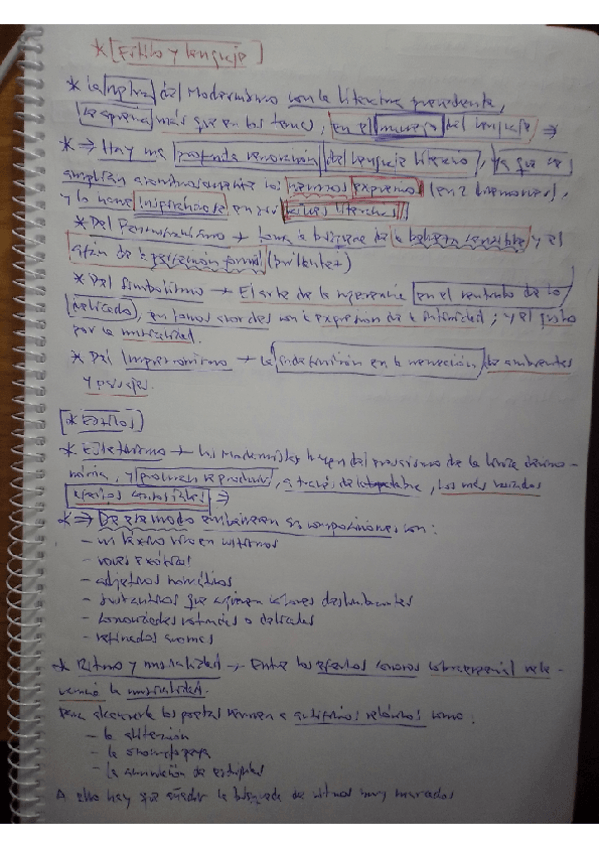 * [Estilo y lenguaje]
* La ruptura del Modernismo con la literatura precedente,
se aprecia más que en los temas, en el manejo del lenguaje ⇒
* ⇒ Hay una profunda renovación del lenguaje literario, ya que se
amplían los recursos expresivos
y lo hace en sus literarias
* Del Parnasianismo → la búsqueda de la belleza sensible y el
afán de la perfección formal (brillantez)
* Del Simbolismo → El arte de la sugerencia en el
delicado, en tonos acordes con la expresión de la intimidad; y el gusto
por la musicalidad.
* Del Impresionismo → la en la recreación de ambientes
y paisajes.
[* Estilos]
* Esteticismo → Los modernistas huyen del prosaísmo de la lírica
, y procuran reproducir, a través de la palabra, los más variados
efectos sensoriales ⇒
* ⇒ De ese modo sus composiciones con:
- un léxico rico en cultismos
- voces exóticas
- adjetivos
- sustantivos que sugieren colores deslumbrantes
- sonoridades rotundas o delicadas
- refinados aromas
* Ritmo y musicalidad → Entre los efectos sonoros cobra especial rele-
vancia la musicalidad.
Para alcanzarla los poetas recurren a artificios retóricos como:
- la aliteración
- la onomatopeya
- la acumulación de
A ello hay que añadir la búsqueda de ritmos muy marcados